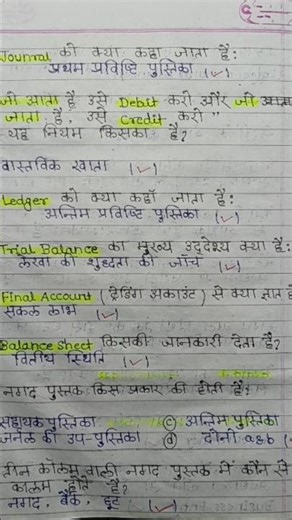 Jounral को क्या कहा जाता है:
प्रथम प्रविष्टि पुस्तिका (✓)
जो आता है उसे Debit करो और जो
जाता है, उसे Credit करो"
यह नियम किसका है?
वास्तविक खाता (✓)
Ledger को क्या कहाँ जाता है:
अन्तिम प्रविष्टि पुस्तिका (✓)
Trial Balance का मुख्य उद्देश्य क्या है:
लेखा की शुध्दता की जाँच (✓)
Final Account (ट्रेडिंग अकाउंट) से क्या ज्ञात
सकल लाभ (✓)
Balance Sheet किसकी जानकारी देता है?
वित्तीय स्थिति (✓)
नगद पुस्तक किस प्रकार की होती है:
सहायक पुस्तिका (c) अन्तिम पुस्तिका
जर्नल की उप-पुस्तिका (d) दोनों a&b
तीन कॉलम वाली नगद पुस्तक में कौन से
कालम होते है?
नगद, बैंक, छूट (✓)